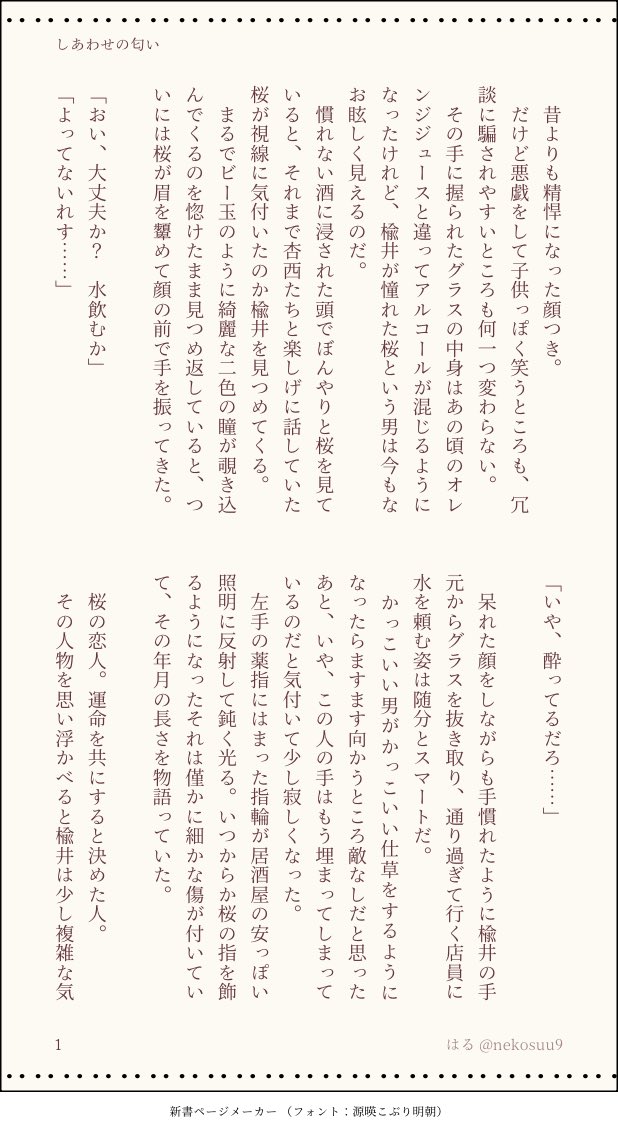 しあわせの匂い
　昔よりも精悍になった顔つき。
　だけど悪戯をして子供っぽく笑うところも、冗
談に騙されやすいところも何一つ変わらない。
　その手に握られたグラスの中身はあの頃のオレ
ンジジュースと違ってアルコールが混じるように
なったけれど、楡井が憧れた桜という男は今もな
お眩しく見えるのだ。
　慣れない酒に浸された頭でぼんやりと桜を見て
いると、それまで杏西たちと楽しげに話していた
桜が視線に気付いたのか楡井を見つめてくる。
　まるでビー玉のように綺麗な二色の瞳が覗き込
んでくるのを惚けたまま見つめ返していると、つ
いには桜が眉を顰めて顔の前で手を振ってきた。
「おい、大丈夫か？　水飲むか」
「よってないれす……」
「いや、酔ってるだろ……」
　呆れた顔をしながらも手慣れたように楡井の手
元からグラスを抜き取り、通り過ぎて行く店員に
水を頼む姿は随分とスマートだ。
　かっこいい男がかっこいい仕草をするように
なったらますます向かうところ敵なしだと思った
あと、いや、この人の手はもう埋まってしまって
いるのだと気付いて少し寂しくなった。
　左手の薬指にはまった指輪が居酒屋の安っぽい
照明に反射して鈍く光る。いつからか桜の指を飾
るようになったそれは僅かに細かな傷が付いてい
て、その年月の長さを物語っていた。
　桜の恋人。運命を共にすると決めた人。
　その人物を思い浮かべると楡井は少し複雑な気
1
はる @nekosuu9
新書ページメーカー （フォント：源暎こぶり明朝）